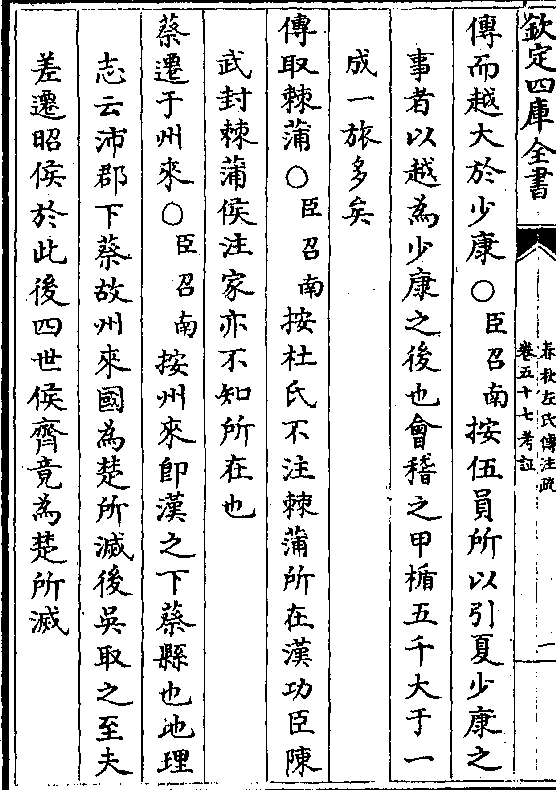 欽定四庫全書
春秋左氏傳注疏
卷五十七考証
二
傳而越大於少康○臣召南按伍員所以引夏少康之
事者以越為少康之後也會稽之甲楯五千大于一
成一旅多矣
傳取棘蒲○臣召南按杜氏不注棘蒲所在漢功臣陳
武封棘蒲侯注家亦不知所在也
蔡遷于州來○臣召南按州來即漢之下蔡縣也地理
志云沛郡下蔡故州來國為楚所滅後吳取之至夫
差遷昭侯於此後四世侯齊竟為楚所滅